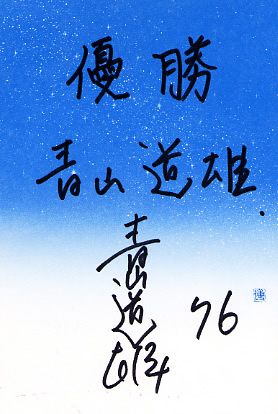 優勝
青山道雄
青山道雄
76